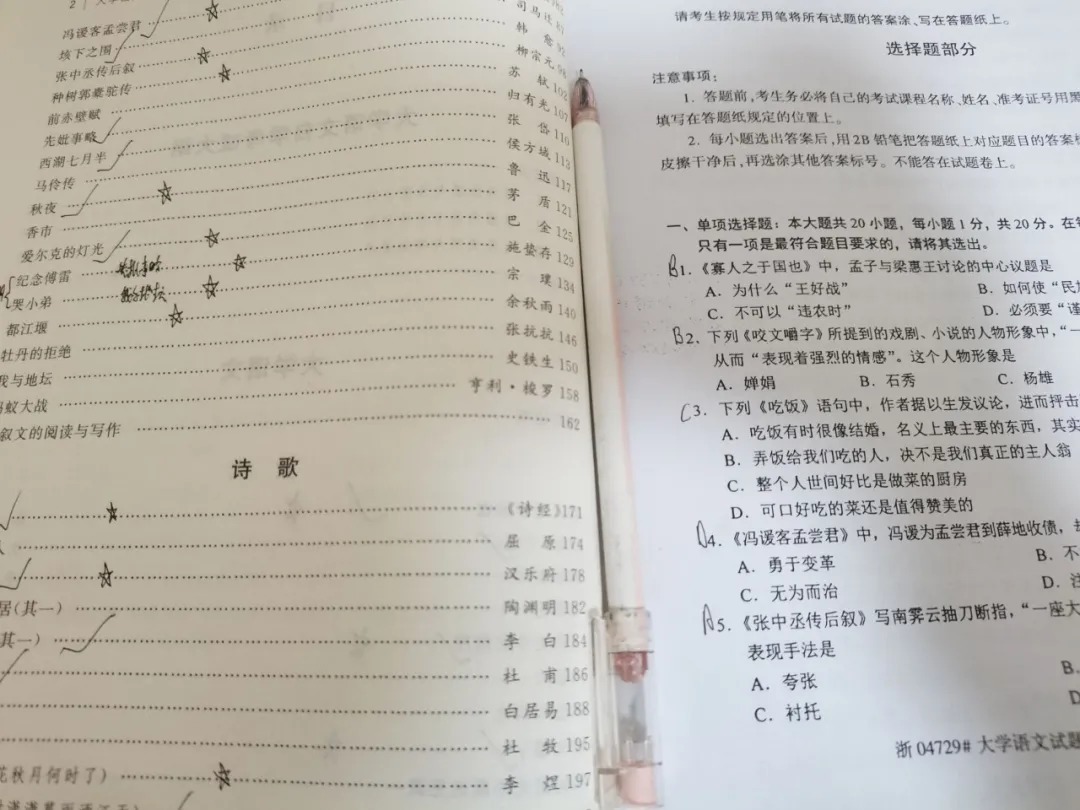 2
冯谖客孟尝君
垓下之围
司马迁
张中丞传后叙
韩 愈 92
种树郭橐驼传
柳宗元
前赤壁赋
苏 轼 102
先妣事略
归有光 107
西湖七月半
张 岱 110
马伶传
侯方域 113
秋夜
鲁 迅 117
香市
茅 盾 121
爱尔克的灯光
巴 金 125
纪念傅雷
施蛰存 129
哭小弟
宗 璞 134
都江堰
余秋雨 140
牡丹的拒绝
张抗抗 146
我与地坛
史铁生 150
蚂蚁大战
亨利·梭罗 158
叙文的阅读与写作
162
诗 歌
《诗经》171
屈 原 174
汉乐府 178
居(其一)
陶渊明 182
其一)
李 白 184
杜 甫 186
白居易 188
杜 牧 195
花秋月何时了)
李 煜 197
请考生按规定用笔将所有试题的答案涂、写在答题纸上。
选择题部分
注意事项:
1. 答题前,考生务必将自己的考试课程名称、姓名、准考证号用黑
填写在答题纸规定的位置上。
2. 每小题选出答案后,用2B铅笔把答题纸上对应题目的答案标
皮擦干净后,再选涂其他答案标号。不能答在试题卷上。
一、单项选择题:本大题共20小题,每小题1分,共20分。在每
只有一项是最符合题目要求的,请将其选出。
B1.《寡人之于国也》中,孟子与梁惠王讨论的中心议题是
A. 为什么“王好战”
B. 如何使“民加
C. 不可以“违农时”
D. 必须要“谨
B2. 下列《咬文嚼字》所提到的戏剧、小说的人物形象中,“一
从而“表现着强烈的情感”。这个人物形象是
A. 婵娟
B. 石秀
C. 杨雄
C3. 下列《吃饭》语句中,作者据以生发议论,进而抨击
A. 吃饭有时很像结婚,名义上最主要的东西,其实
B. 弄饭给我们吃的人,决不是我们真正的主人翁
C. 整个人世间好比是做菜的厨房
D. 可口好吃的菜还是值得赞美的
D4.《冯谖客孟尝君》中,冯谖为孟尝君到薛地收债,却
A. 勇于变革
B. 不
C. 无为而治
D. 注
A5.《张中丞传后叙》写南霁云抽刀断指,“一座大
表现手法是
A. 夸张
B.
C. 衬托
D
浙 04729# 大学语文试题